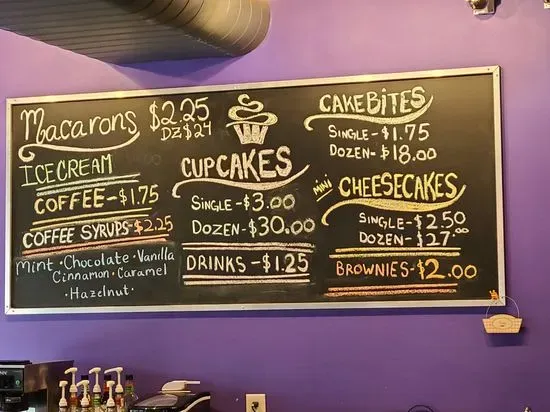 Macarons $2.25
DZ $24
ICECREAM
COFFEE-$1.75
COFFEE SYRUPS-$2.25
Mint · Chocolate · Vanilla
Cinnamon · Caramel
· Hazelnut ·
CUPCAKES
SINGLE-$3.00
DOZEN-$30.00
DRINKS-$1.25
CAKEBITES
SINGLE-$1.75
DOZEN-$18.00
MINI CHEESECAKES
SINGLE-$2.50
DOZEN-$27.00
BROWNIES-$2.00